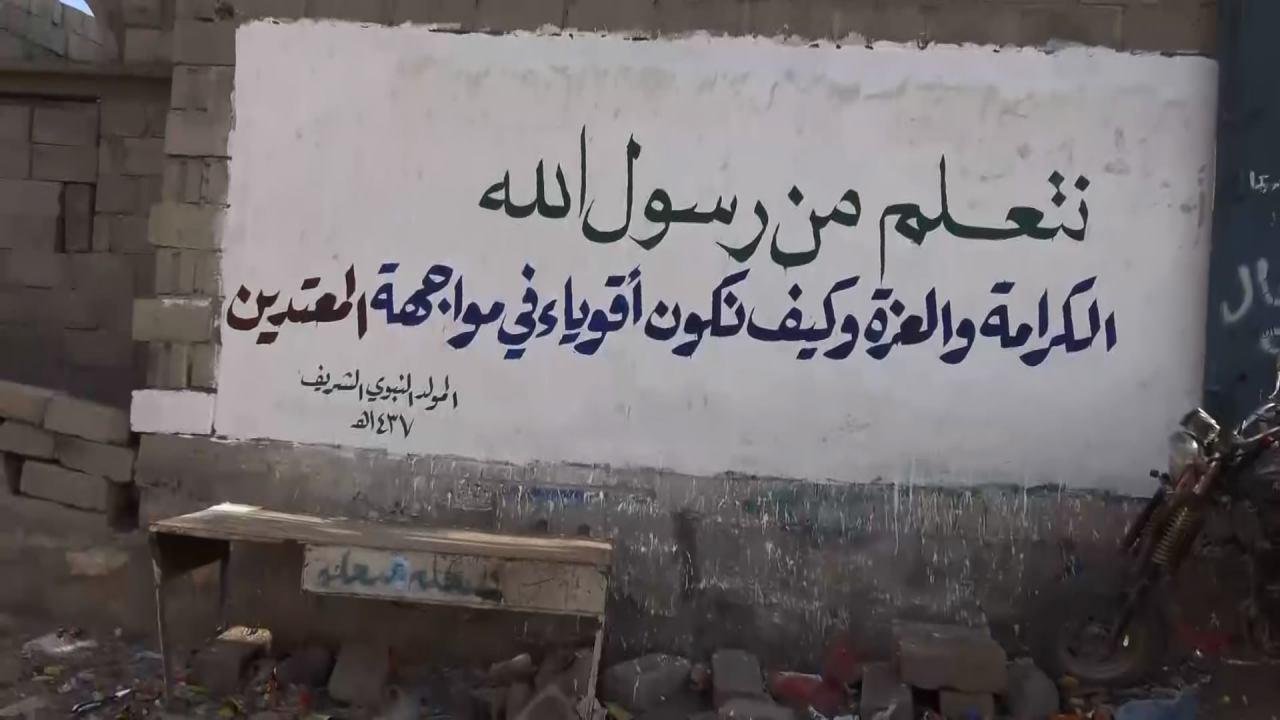 نتعلم من رسول الله
الكرامة والعزة وكيف نكون أقوياء في مواجهة المعتدين
المولد النبوي الشريف
١٤٣٧هـ